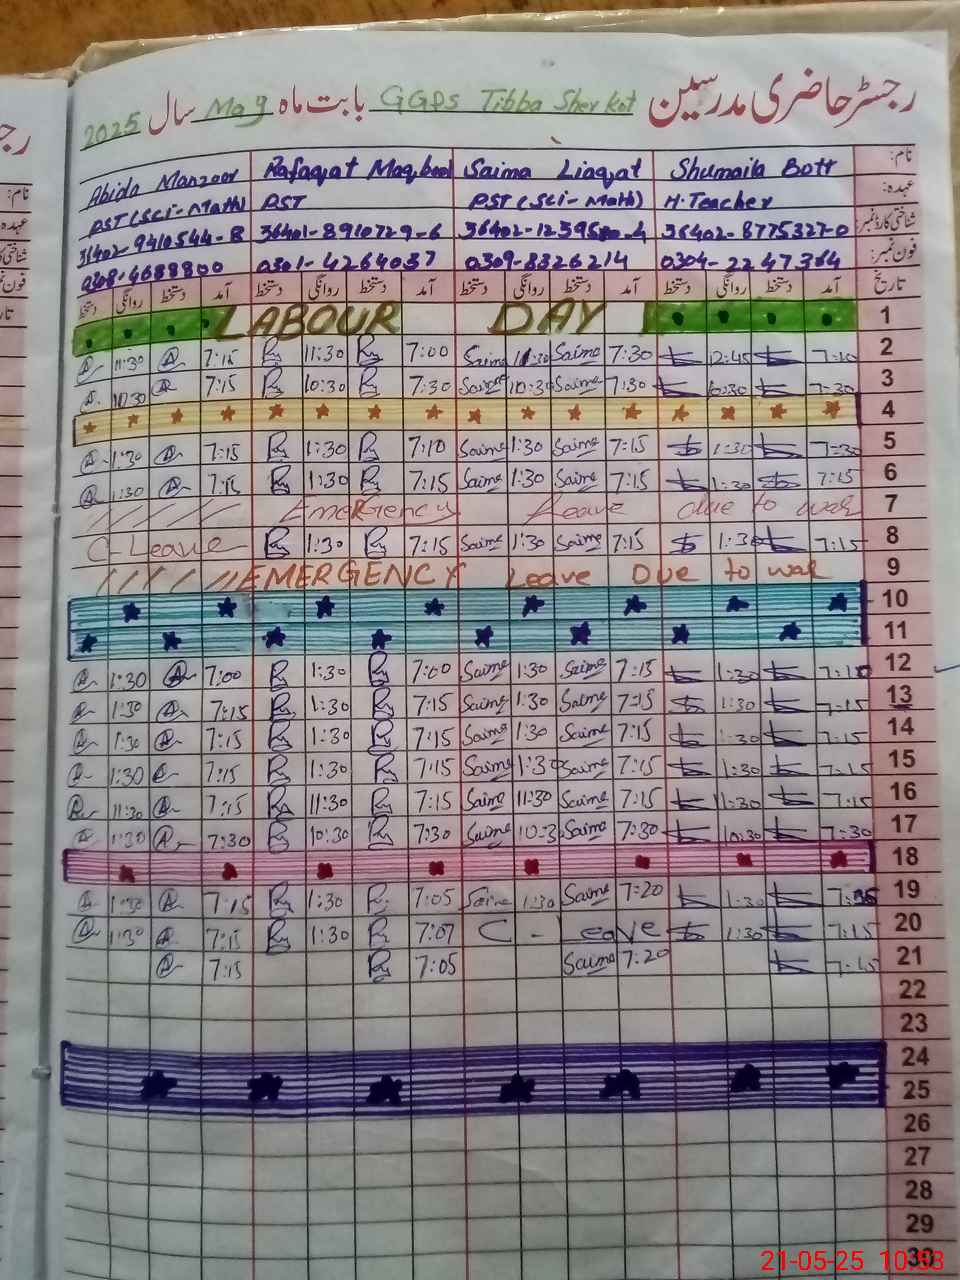 رجسٹر حاضری مدرسین GGPS Tibba Sher Kot بابت ماہ May سال 2025
نام: Shumaila Bott Saima Liaqat Rafaqat Maqbool Abida Manzoor
عہدہ: H.Teacher PST (Sci-Math) PST PST (Sci-Math)
شناختی کارڈ نمبر: 36402-8775327-0 36401-8910729-6 36402-9410544-8
فون نمبر: 0304-2247364 0309-8326214 0301-4264037 0308-4688800
تاریخ آمد دستخط روانگی دستخط آمد دستخط روانگی دستخط آمد دستخط روانگی دستخط آمد دستخط روانگی دستخط
LABOUR DAY 1
11:30 7:15 11:30 7:00 Saima 11:30 Saima 7:30 12:45 7:10 2
10:30 7:15 10:30 7:30 Saima 10:30 Saima 7:30 10:30 7:30 3
4
1:30 7:15 1:30 7:10 Saima 1:30 Saima 7:15 1:30 7:30 5
1:30 7:15 1:30 7:15 Saima 1:30 Saima 7:15 1:30 7:15 6
Emergency Leave due to war 7
C-Leave 1:30 7:15 Saima 1:30 Saima 7:15 1:30 7:15 8
EMERGENCY Leave Due to war 9
10
11
1:30 7:00 1:30 7:00 Saima 1:30 Saima 7:15 1:30 7:10 12
1:30 7:15 1:30 7:15 Saima 1:30 Saima 7:15 1:30 7:15 13
1:30 7:15 1:30 7:15 Saima 1:30 Saima 7:15 1:30 7:15 14
1:30 7:15 1:30 7:15 Saima 1:30 Saima 7:15 1:30 7:15 15
11:30 7:15 11:30 7:15 Saima 11:30 Saima 7:15 11:30 7:15 16
1:30 7:30 10:30 7:30 Saima 10:3 Saima 7:30 10:30 7:30 17
18
1:30 7:15 1:30 7:05 Saima 1:30 Saima 7:20 1:30 19
1:30 7:15 1:30 7:07 C-Leave 1:30 7:15 20
7:15 7:05 Saima 7:20 21
22
23
24
25
26
27
28
29
30
21-05-25 10:53